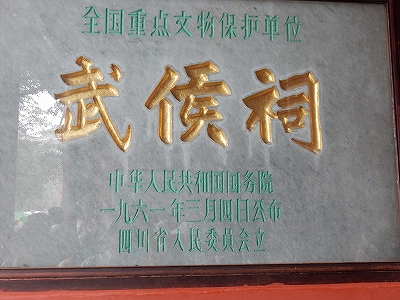 全国重点文物保护单位
武侯祠
中华人民共和国国务院
一九六一年三月四日公布
四川省人民委员会立